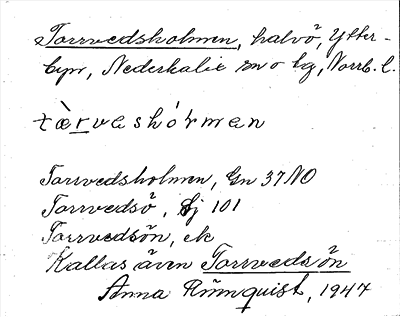 Torrvedsholmen, halvö, Ytter-
byn, Nederkalix sn o tg, Norrb. l.
tæ̀rvashórmen
Torrvedsholmen, Gn 37 NO
Torrvedsö, Sj 101
Torrvedsön, ek
Kallas även Torrvedsön
Anna Rönnquist, 1947